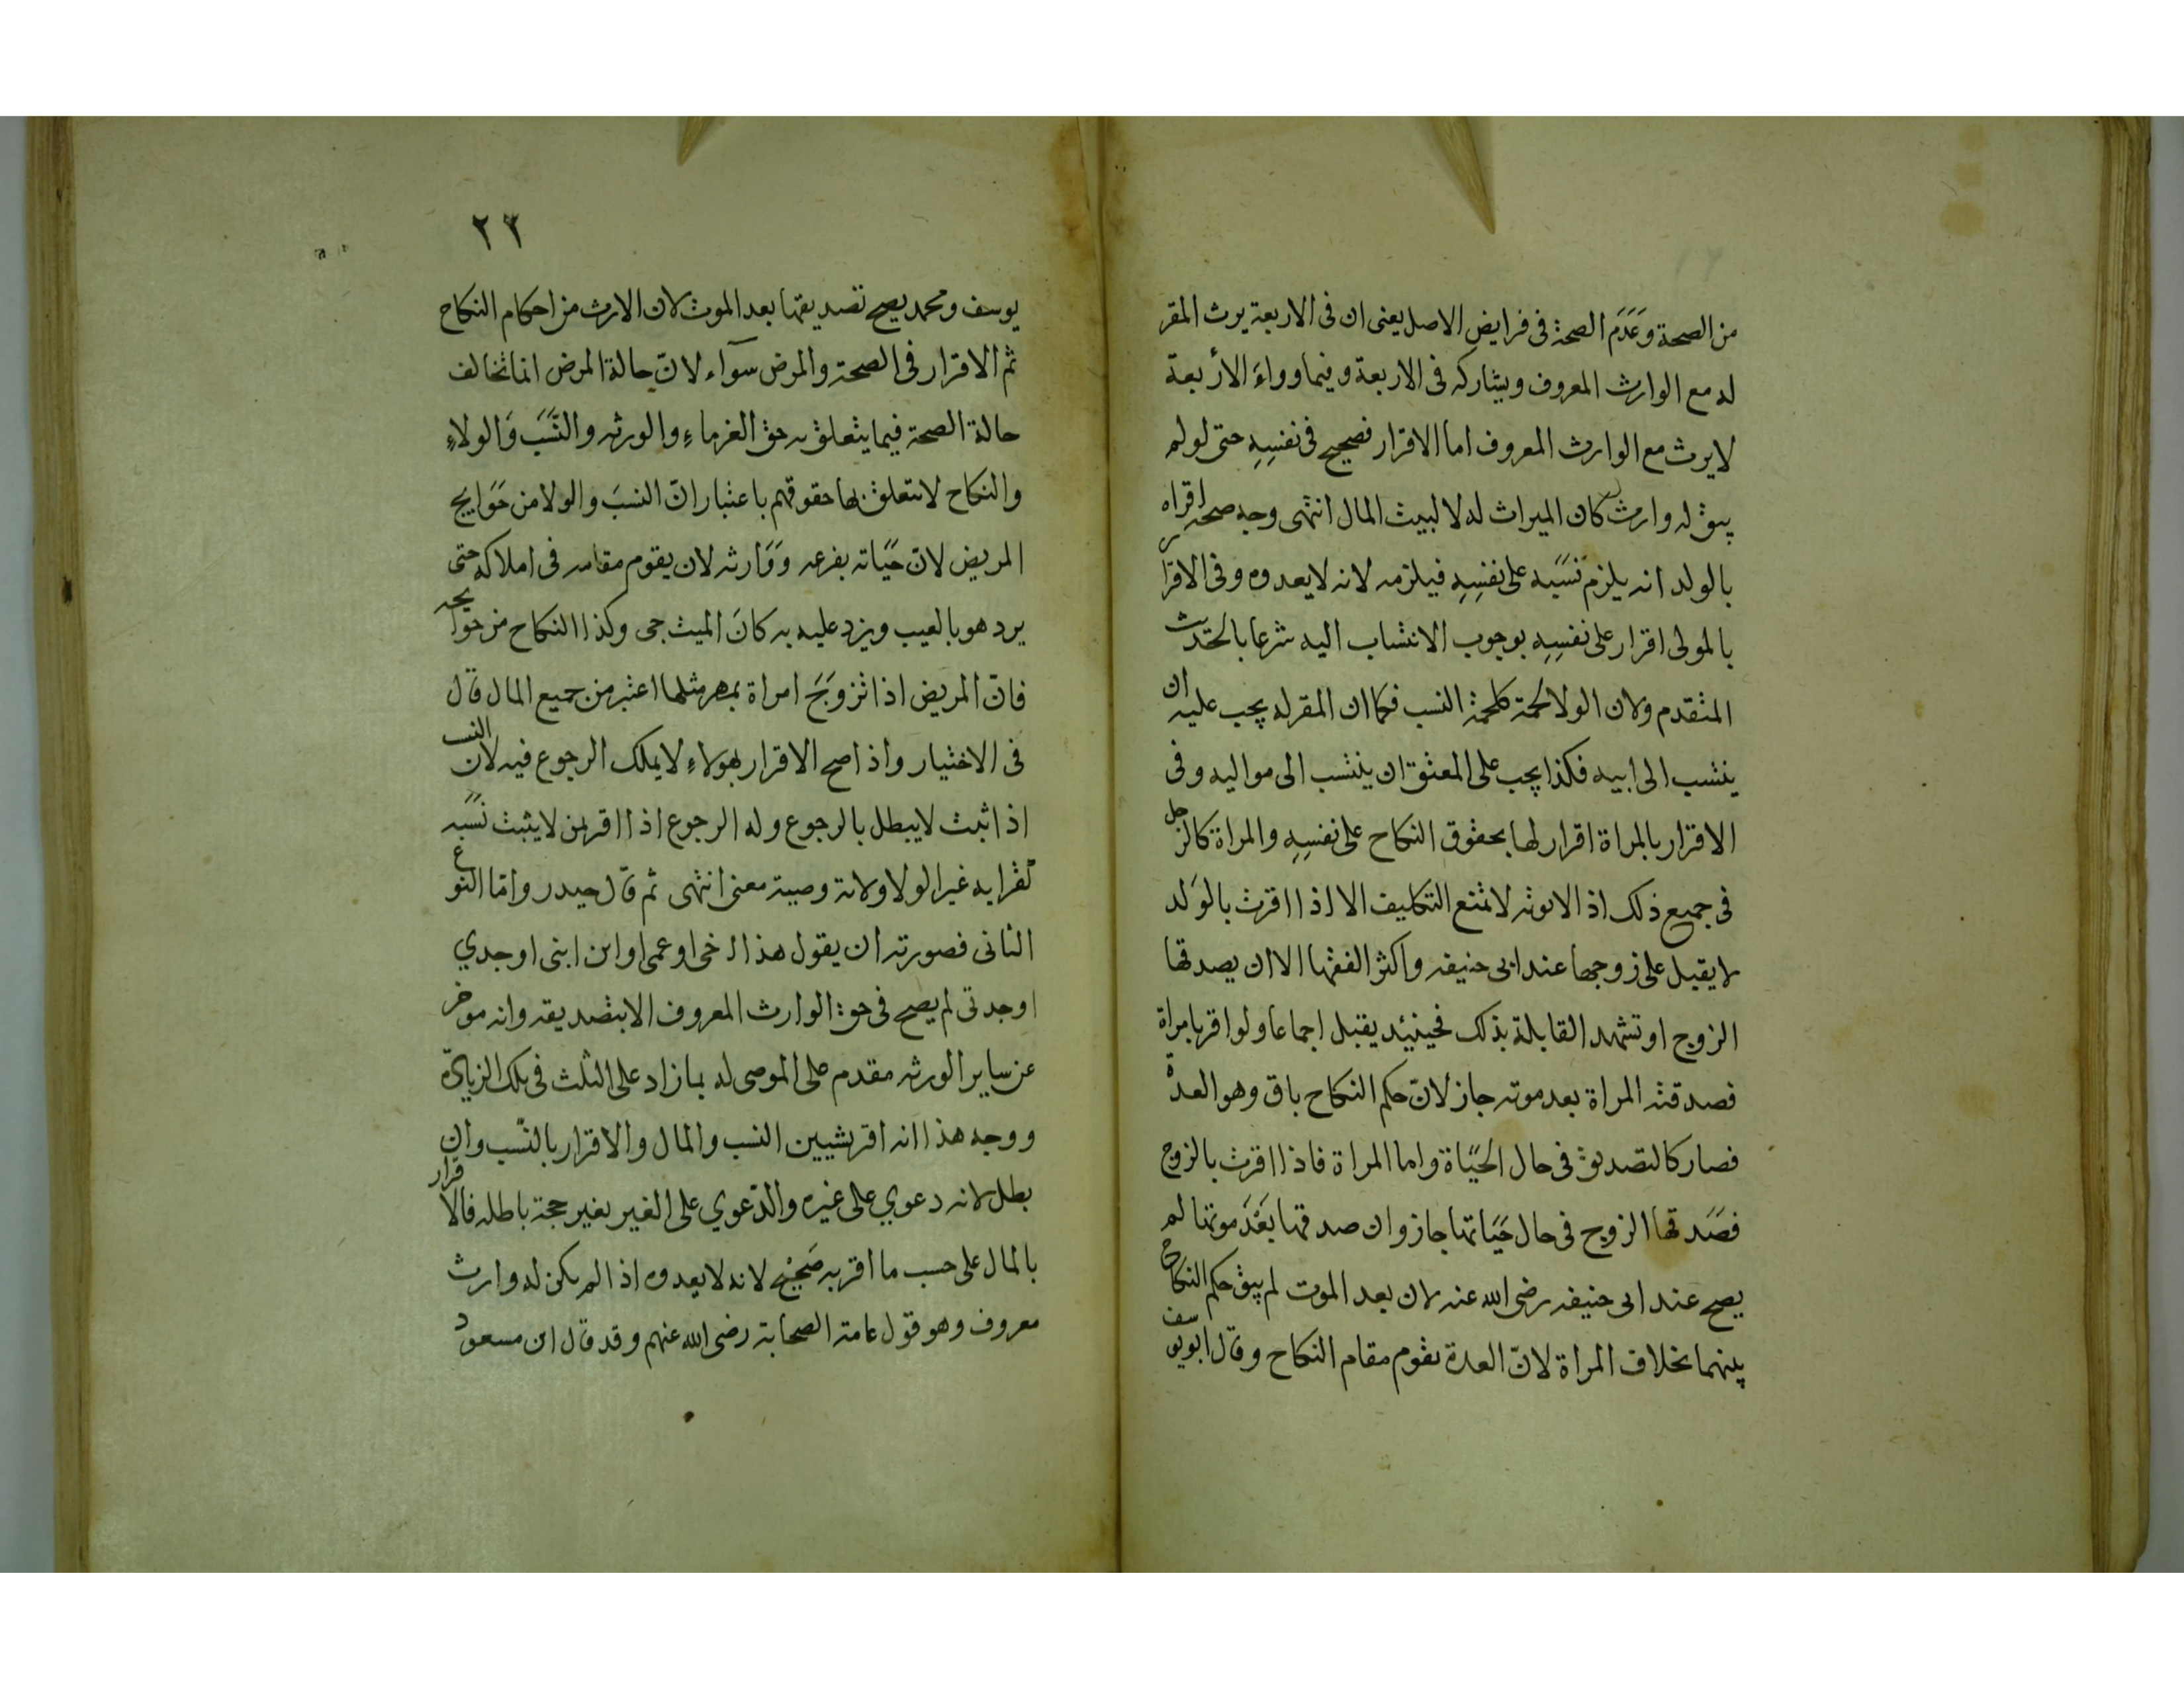 من الصحة وَعَدَم الصحة فى فرايض الاصل يعنى ان فى الاربعة يرث المقر
له مع الوارث المعروف ويشاركه فى الاربعة وفيما وراءَ الأربعة
لا يرث مع الوارث المعروف اما الاقرار فصحيح فى نفسِهِ حتى لو لم
يبق له وارث كان الميراث له لا لبيت المال انتهى وجه صحة اقراه
بالولد انه يلزم نسَبه على نفسِهِ فيلزمه لانه لا يعدوه وفى الاقرار
بالمولى اقرار على نفسِهِ بوجوب الانتساب اليه شرعا بالحَديث
المتقدم ولان الولا لحمة كلحمة النسب فكما ان المقر له يجب عليه ان
ينتسب الى ابيه فكذا يجب على المعتق ان ينتسب الى مواليه وفى
الاقرار بالمراة اقرار لها بحقوق النكاح على نفسِهِ والمراة كالرجل
فى جميع ذلك اذ الانوثه لا تمنع التكليف الا اذا اقرت بالوَلد
لا يقبل على زوجها عند ابى حنيفه واكثر الفقها الا ان يصدقها
الزوج او تشهد القابلة بذلك فحينئد يقبل اجماعا ولو اقر بامراة
فصدقته المراة بعد موته جاز لانّ حكم النكاح باق وهو العدة
فصار كالتصديق فى حال الحَيَاة واما المراة فاذا اقرت بالزوج
فصَدقها الزوج فى حال حَيَاتها جاز وان صدقها بَعْدَ موتها لم
يصح عند ابى حنيفه رضى الله عنه لان بعد الموت لم يبق حكم النكاح
بينهما بخلاف المراة لانّ العدة تقوم مقام النكاح وقال ابو يوسف
٢٣
يوسف ومحمد يصح تصديقها بعد الموت لان الارث من احكام النكاح
ثم الاقرار فى الصحة والمرض سوَآء لانّ حالة المرض انما تخالف
حالة الصحة فيما يتعلق به حق الغرماءِ والورثه والنَّسَب وَالولاءِ
والنكاح لا تتعلق بها حقوقهم باعتبار انّ النسَب والولا من حَوَايج
المريض لانّ حَيَاته بفرعه وَوَارثه لان يقوم مقامه فى املاكه حتى
يرد هو بالعيب ويرد عليه به كانَ الميت حى وكذا النكاح من حوايجه
فانّ المريض اذا تزوَجَ امراة بمهر مثلها اعتبر من جميع المال قال
فى الاختيار واذا صح الاقرار بهولاءِ لا يملك الرجوع فيه لان النسب
اذا ثبت لا يبطل بالرجوع وله الرجوع اذا اقر لمن لا يثبت نسَبه
لقرابه غير الولا ولانة وصية معنى انتهى ثم قال حيدر وامّا النوع
الثانى فصورته ان يقول هذا اخى او عمى او ابن ابنى او جدي
او جدتى لم يصح فى حق الوارث المعروف الا بتصديقه وانه موخر
عن ساير الورثه مقدم على الموصى له بما زاد على الثلث فى تلك الزيادة
ووجه هذا انه اقر بشيين النسب والمال والاقرار بالنّسب وان
بطل لانه دعوي على غيره والدّعوي على الغير بغير حجة باطله فالاقرار
بالمال على حسب ما اقر به صَحِيْح لانه لا يعدوه اذا لم يكن له وارث
معروف وهو قول عامة الصحابة رضى الله عنهم وقد قال ابن مسعود